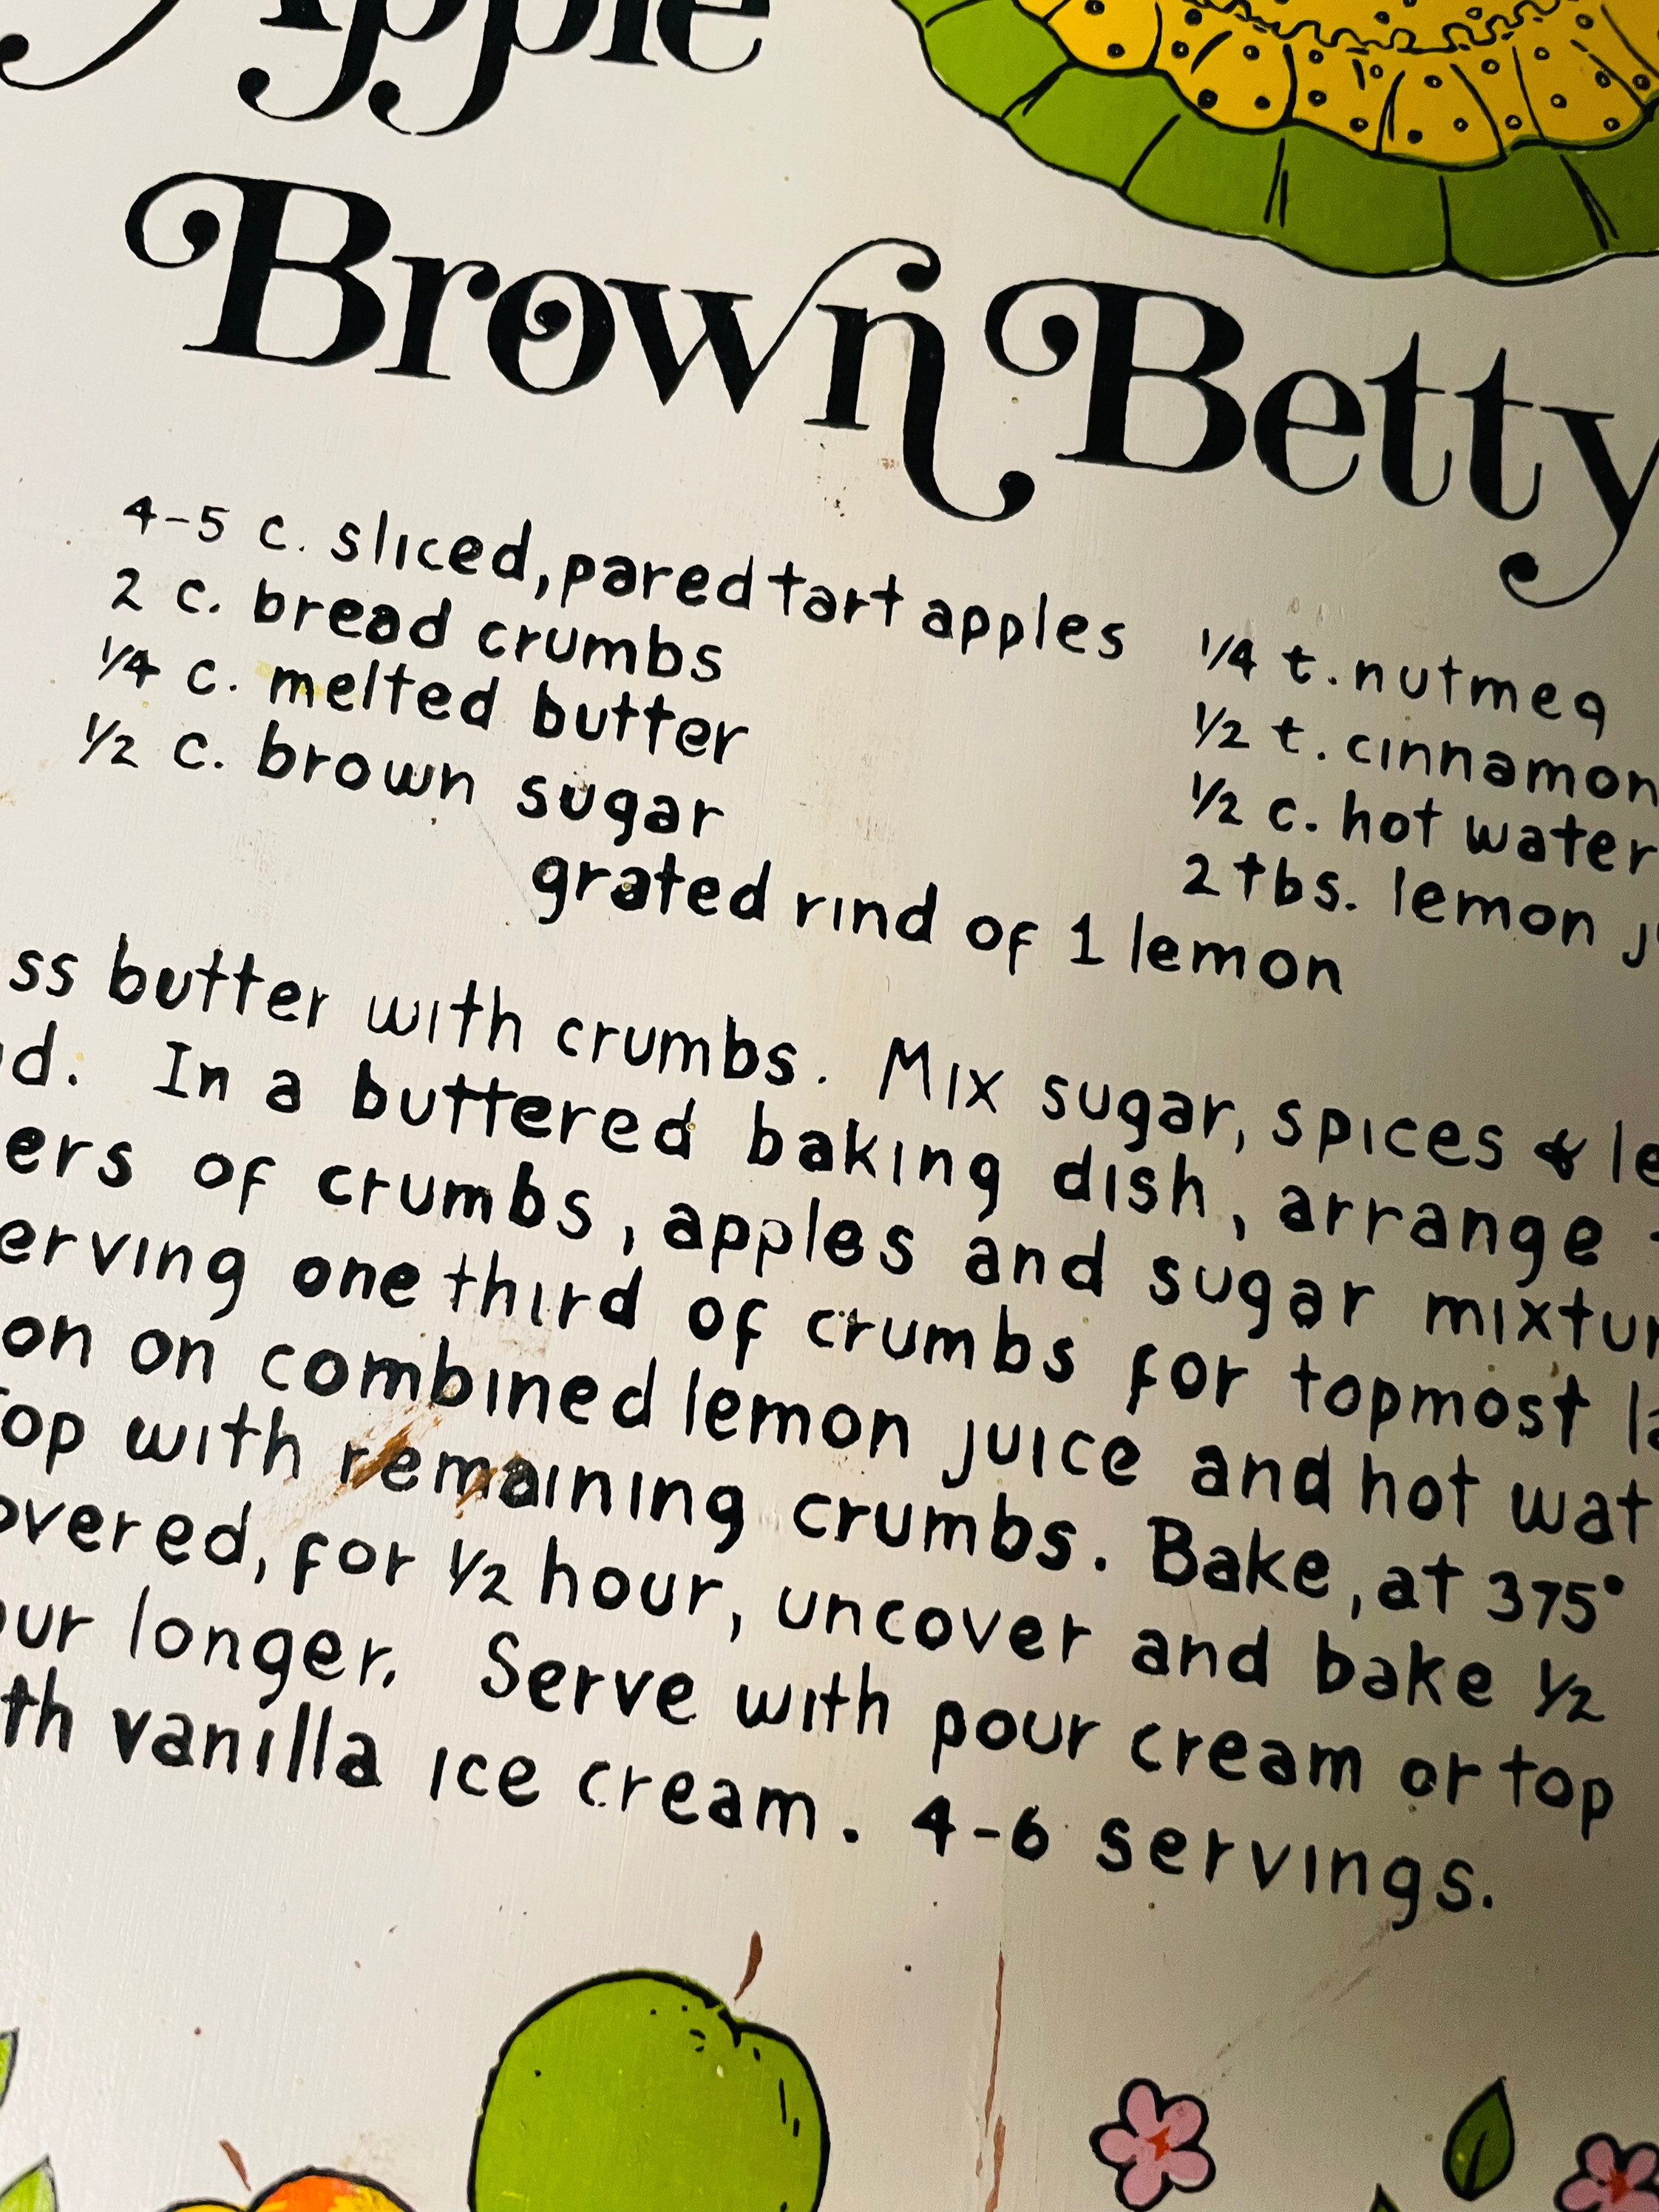 Apple
Brown Betty
4-5 c. sliced, pared tart apples
2 c. bread crumbs
1/4 c. melted butter
1/2 c. brown sugar
1/4 t. nutmeg
1/2 t. cinnamon
1/2 c. hot water
2 tbs. lemon
grated rind of 1 lemon
ss butter with crumbs. Mix sugar, spices & le
d. In a buttered baking dish, arrange
ers of crumbs, apples and sugar mixtur
erving one third of crumbs for topmost la
on on combined lemon juice and hot wat
op with remaining crumbs. Bake, at 375°
overed, for 1/2 hour, uncover and bake 1/2
ur longer. Serve with pour cream or top
th vanilla ice cream. 4-6 servings.